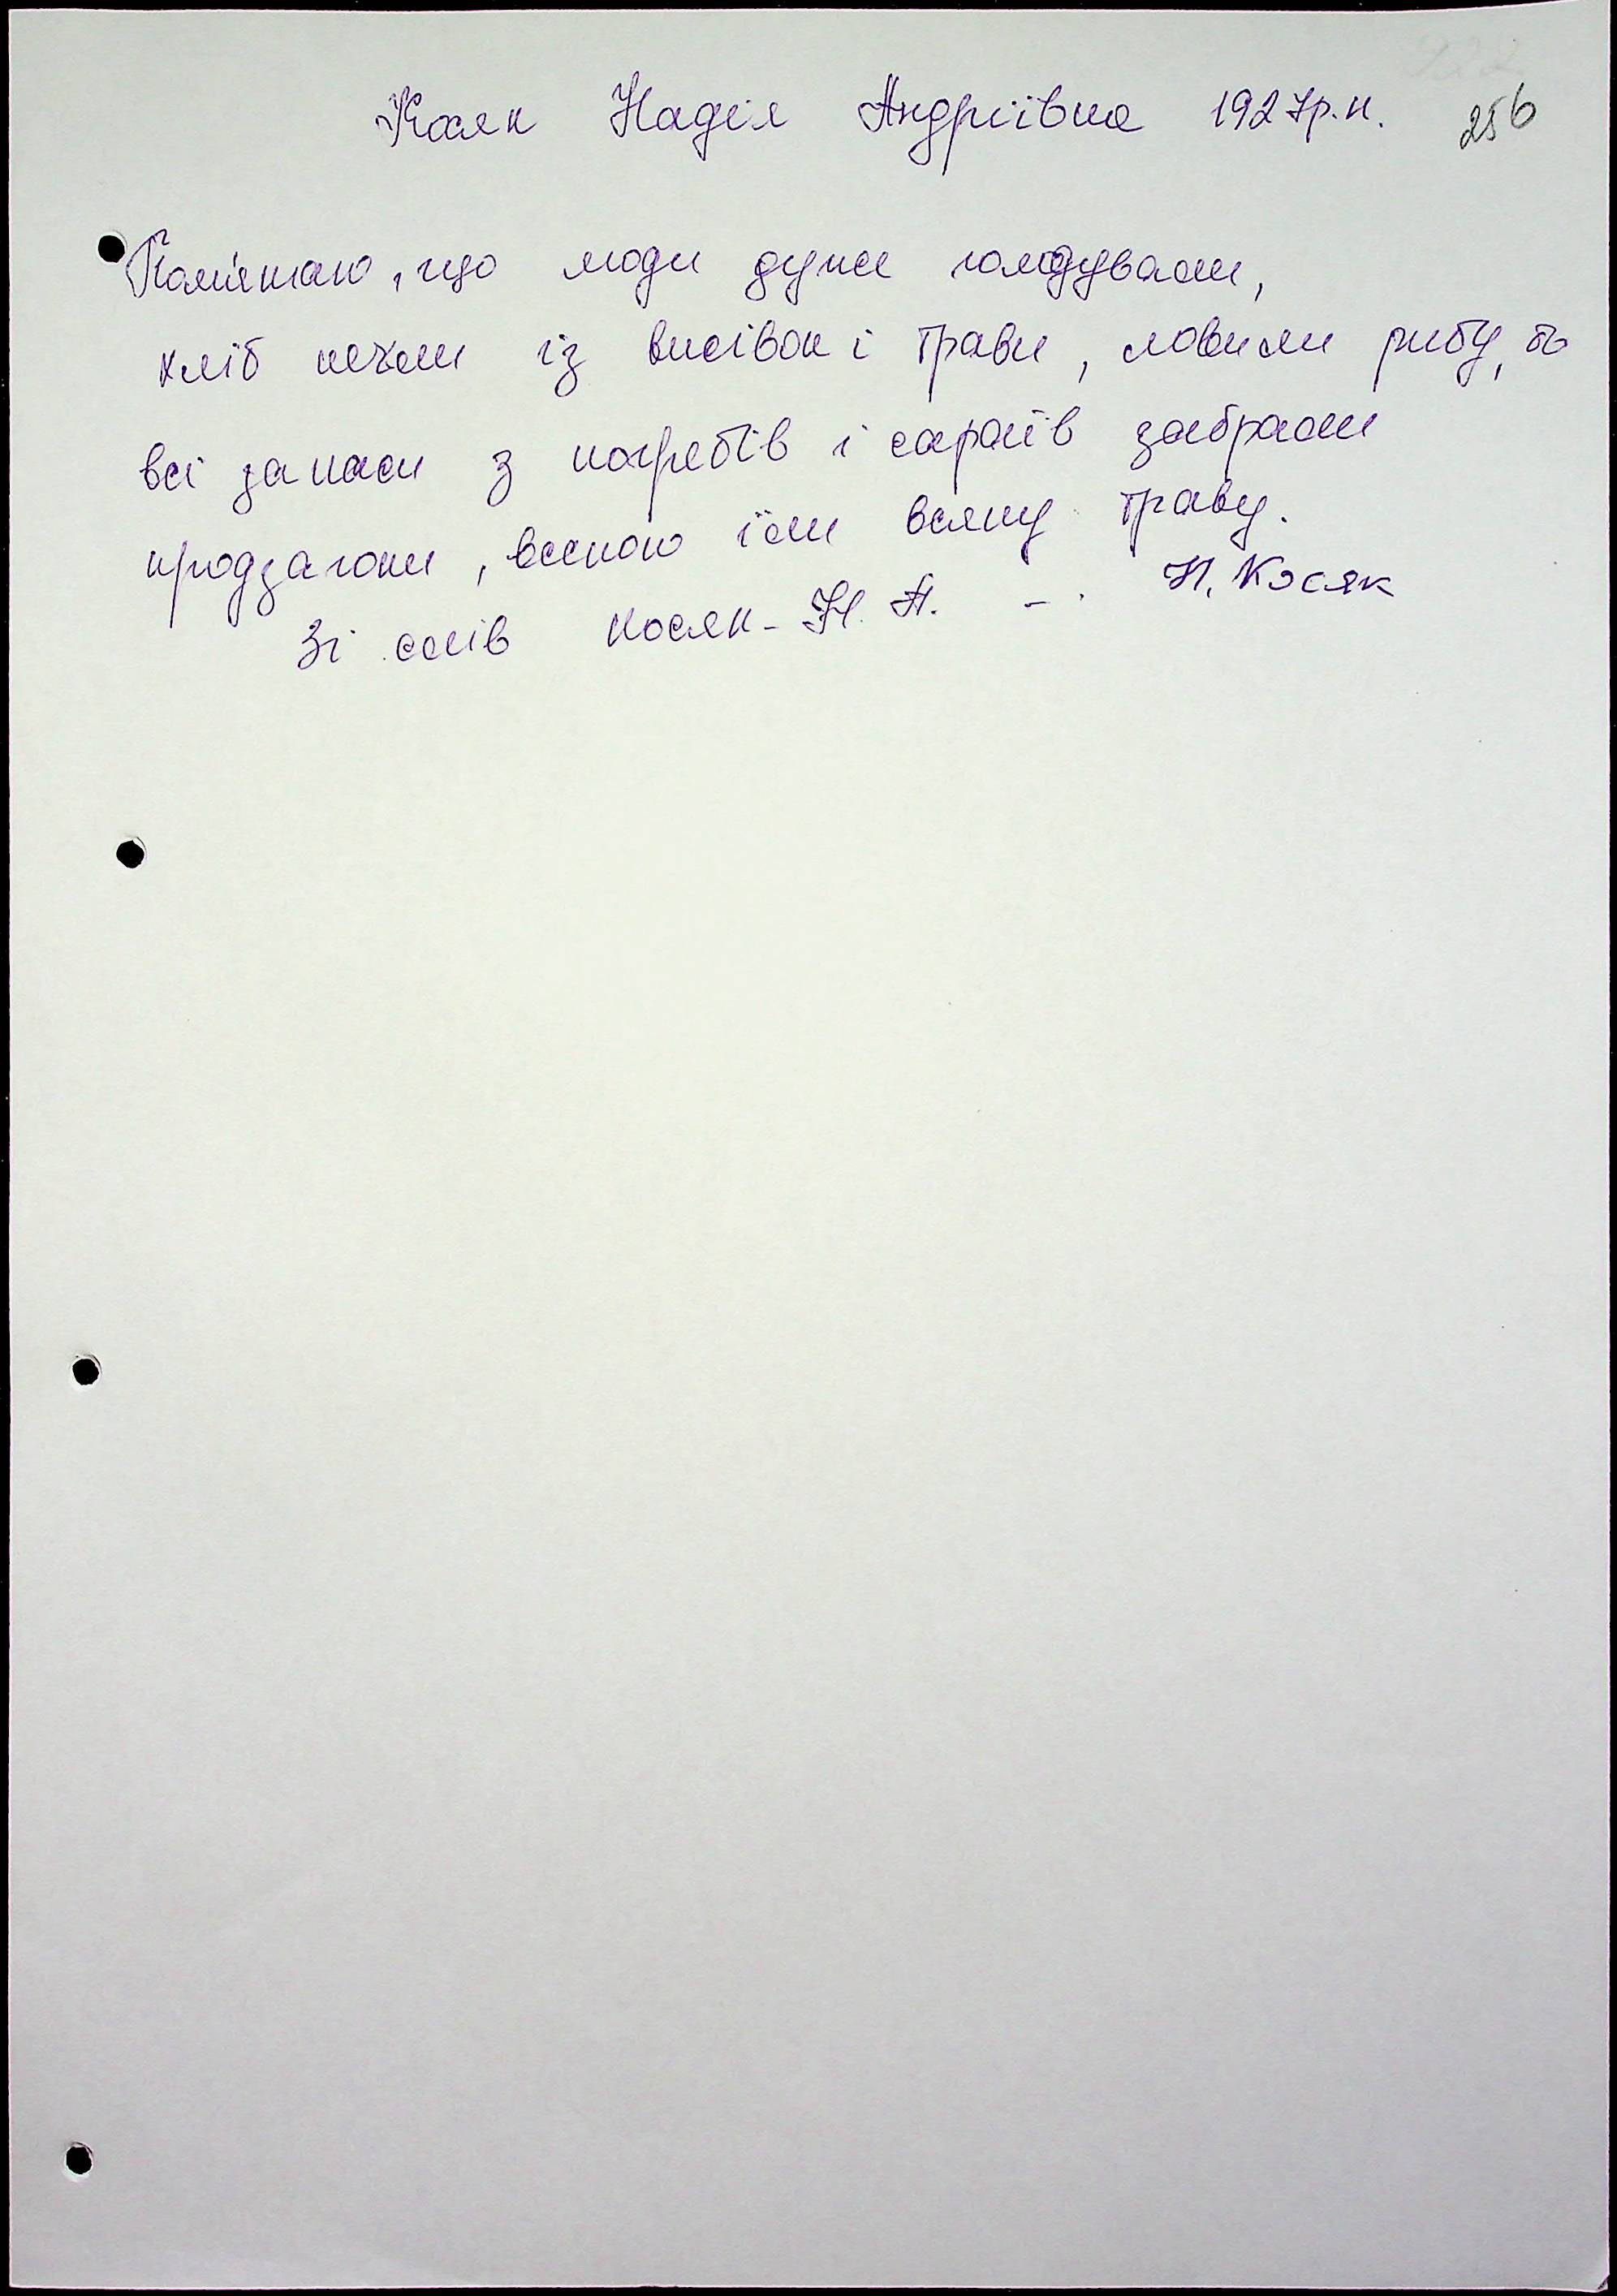 Косяк Надія Андріївна 1927р.н. 256
Пам'ятаю, що люди дуже голодували,
хліб пекли із висівок і трави, ловили рибу, бо
всі запаси з погребів і сараїв забрали
продзагони, весною їли всяку траву.
Зі слів Косяк Н. А. – Н. Косяк